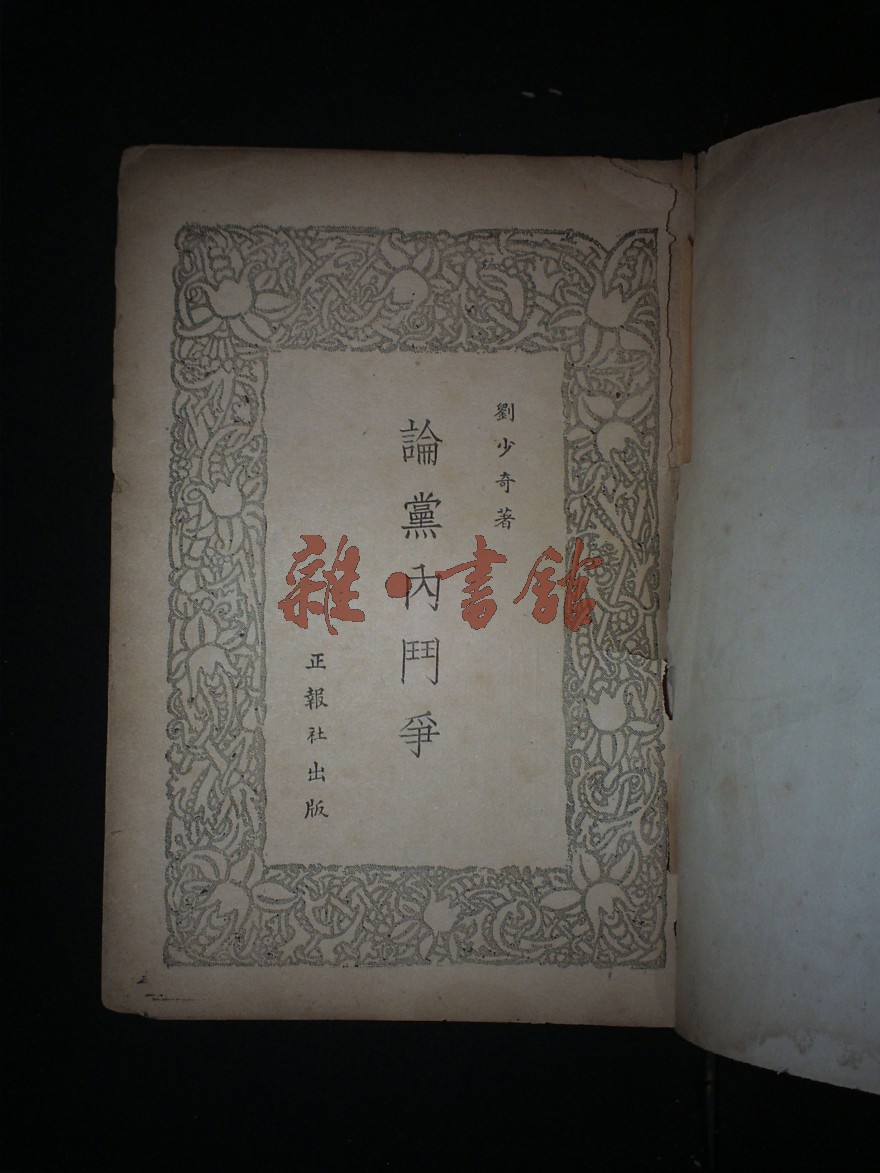 劉少奇著
論黨內鬥爭
正報社出版
雜·書館